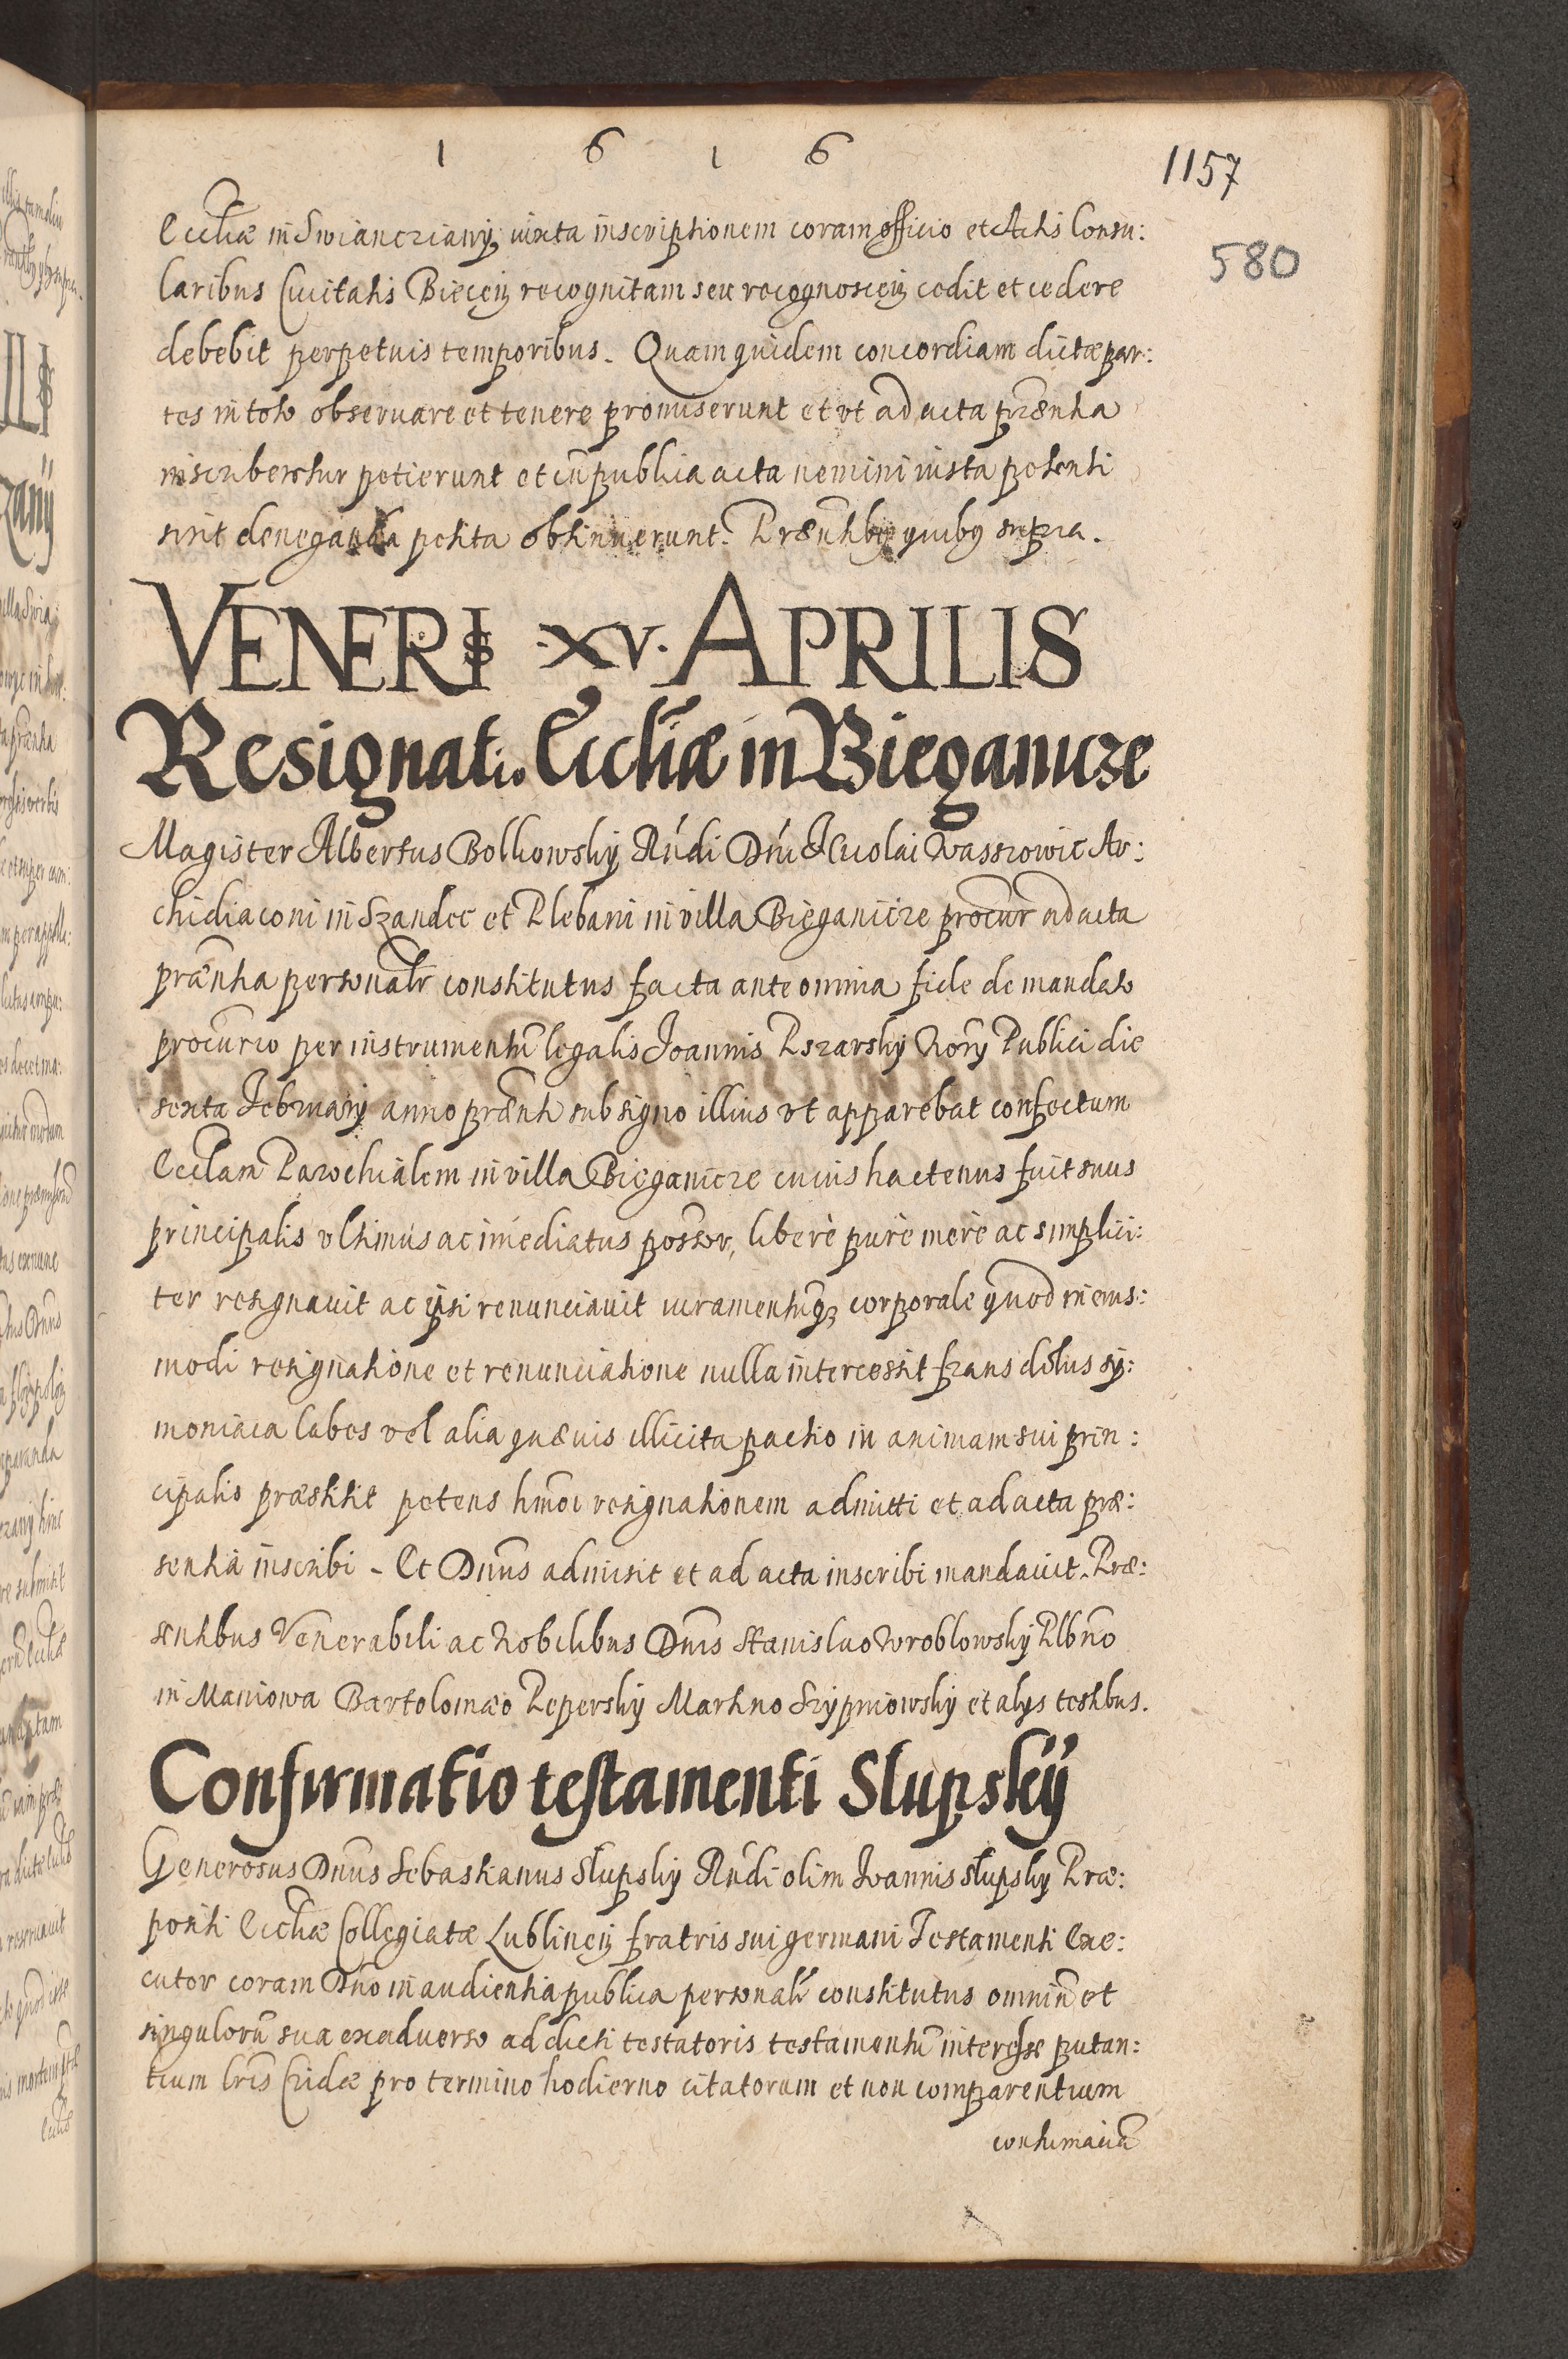 1 6 1 6
1157
580
Eccliæ in Swiancziany iuxta inscriptionem coram officio et Actis Consu:
laribus Civitatis Biecen recognitam seu recognoscen cedit et cedere
debebit perpetuis temporibus. Quam quidem concordiam dictæ par:
tes in toto obseruare et tenere promiserunt et vt ad acta prænta
inscriberetur petierunt et cũ publica acta nemini iusta petenti
sint deneganda petita obtinuerunt. Præntibus quibus supra.
VENERIS XV. APRILIS
Resignatio Eccliæ in Bieganicze
Magister Albertus Bolkowsky Rńdi Dńi Nicolai Wasszowic Ar:
chidiaconi in Szandec et Plebani in villa Bieganicze procur ad acta
prænta personalr constitutus facta ante omnia fide de mandato
procurio per instrumentũ legalis Joannis Pszarsky Nory Publici die
sexta February anno prænti sub signo illius vt apparebat confectum
Ecclam Parochialem in villa Bieganicze cuius hactenus fuit suus
principalis vltimus ac imediatus possor, liberè purè merè ac simplici:
ter resignauit ac ipsi renunciauit iuramentũq corporale quod in eius:
modi resignatione et renunciatione nulla intercessit fraus dolus sy:
moniaca labes vel alia quæuis illicita pactio in animam sui prin:
cipalis præstitit petens hmoi resignationem admitti et ad acta præ:
sentia inscribi - Et Dnus admisit et ad acta inscribi mandauit. Præ:
sentibus Venerabili ac Nobilibus Dnis Stanislao Wroblowsky Plbno
in Maniowa Bartolomæo Pepersky Martino Szypniowsky et alys testibus.
Confirmatio testamenti Slupsky
Generosus Dnus Sebastianus Slupsky Rńdi olim Joannis Slupsky Præ:
positi Eccliæ Collegiatæ Lublinen fratris sui germani Testamenti Exe:
cutor coram Dno in audientia publica personalr constitutus omniũ et
singulorũ sua ex aduerso ad dicti testatoris testamentũ interesse putan:
tium lris Cridæ pro termino hodierno citatorum et non comparentium
contumaciã